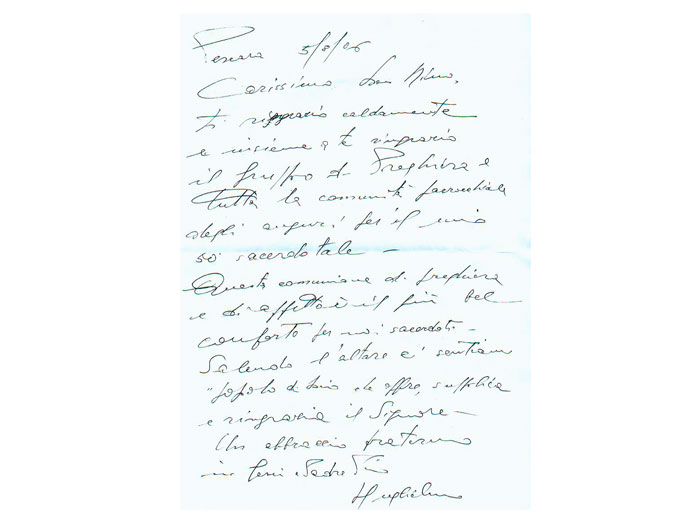 Pescara 5/8/06
Carissimo Don Mimo,
ti ringrazio caldamente
e insieme a te ringrazio
il gruppo di Preghiera e
tutta la comunità parrocchiale
degli auguri per il mio
50° sacerdotale –
Questa comunione di preghiera
e di affetto è il più bel
conforto per noi sacerdoti –
Salendo l'altare ci sentiamo
"popolo di Dio che offre, supplica
e ringrazia il Signore –
Un abbraccio fraterno
in Gesù e Padre Pio
Guglielmo